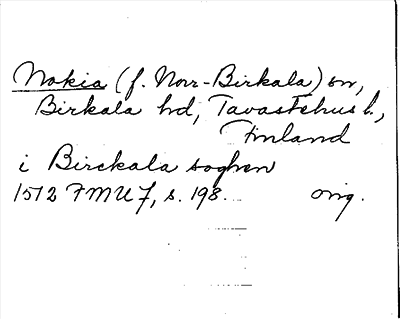 Nokia (f. Norr-Birkala) sn,
Birkala hd, Tavastehus l.,
Finland
i Birckala soghen
1512 FMU 7, s. 198. orig.